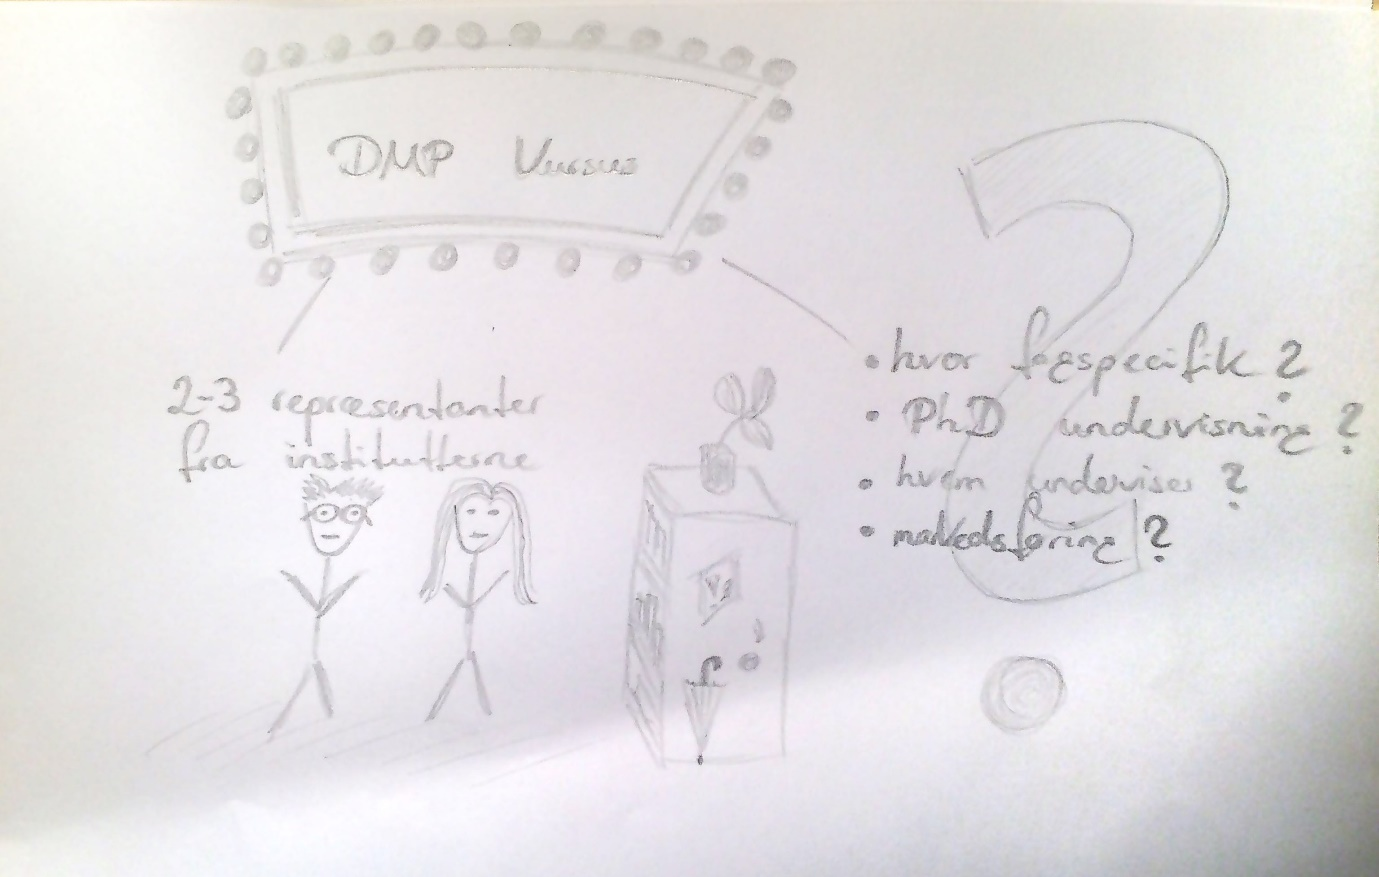 DMP Versus
2-3 repræsentanter
fra institutterne
• hvor fagspecifik?
• PhD undervisning?
• hvem underviser?
• markedsføring?